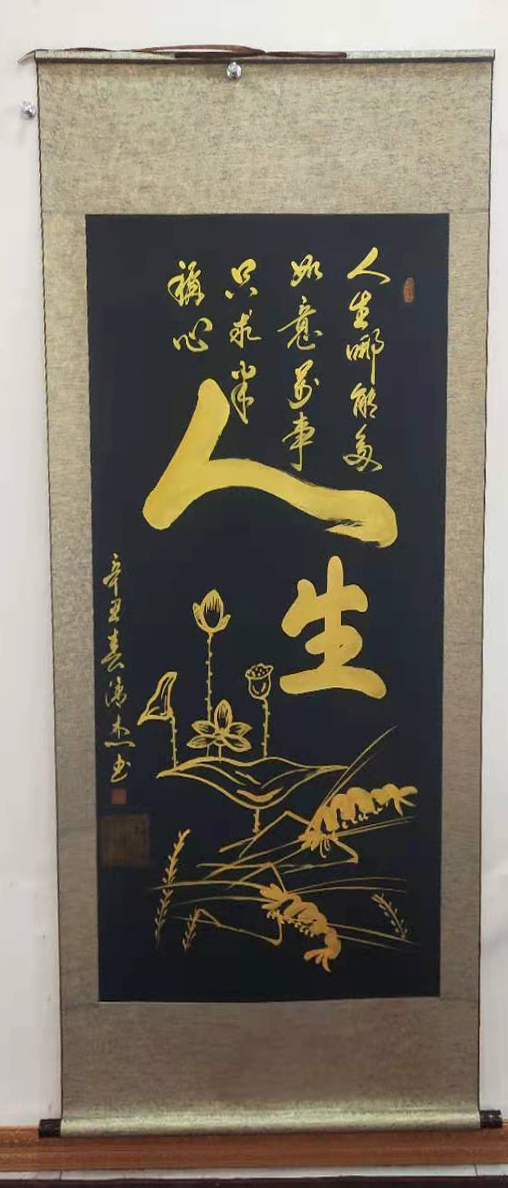 人生哪能多
如意万事
只求半
称心
人生
辛丑春
杰书